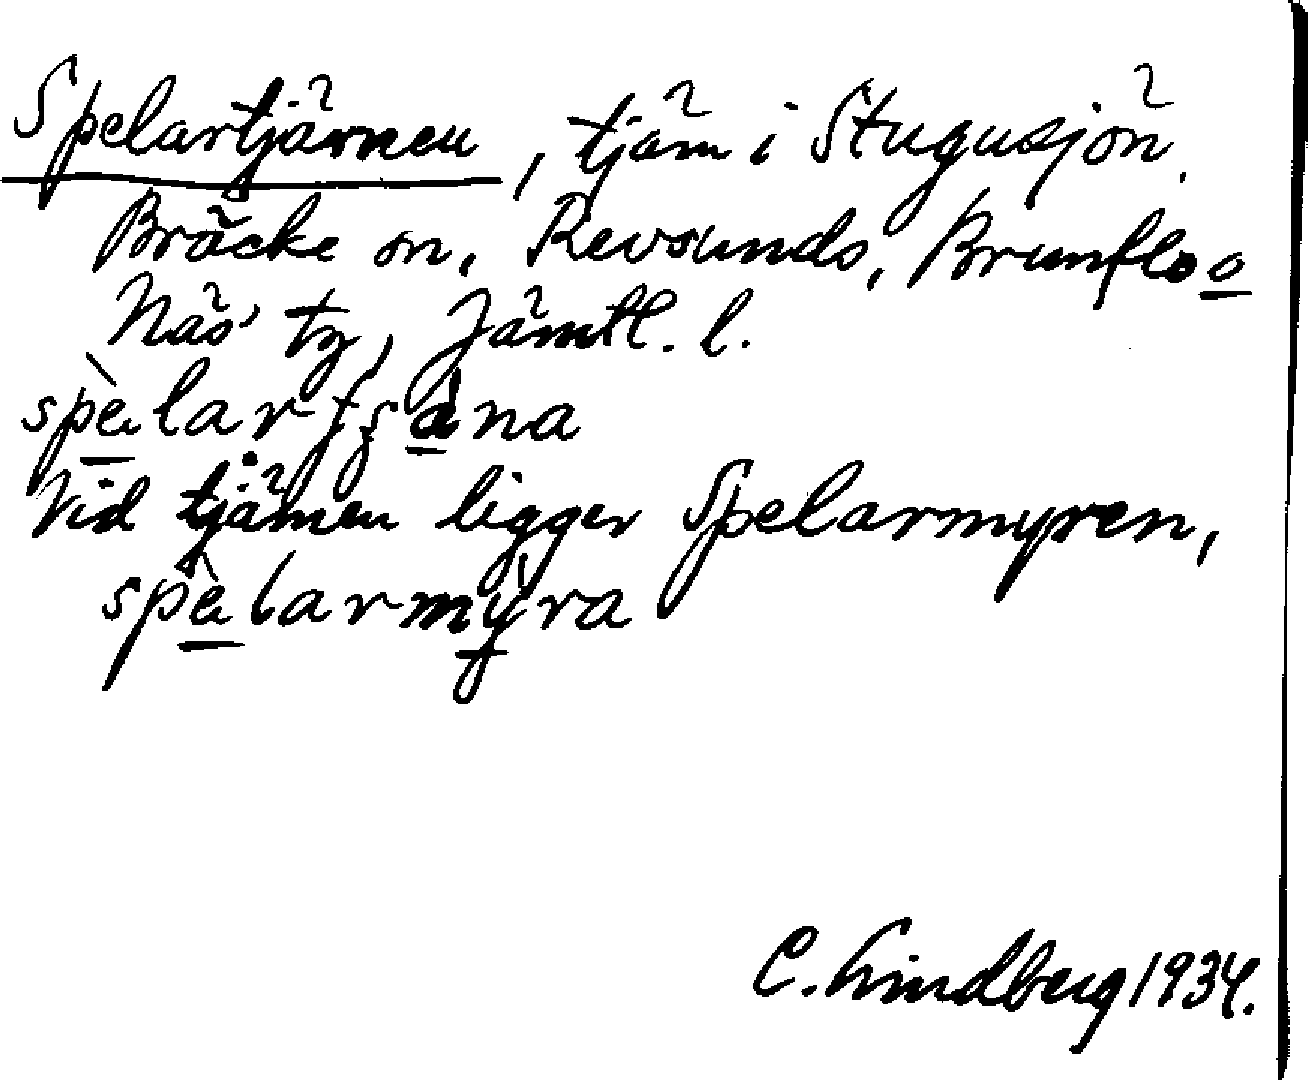 Spelartjärnen, tjärn i Stugusjön.
Bräcke sn, Revsunds, Brunflo o
Näs' tg, Jämtl. l.
spè̱lar-tʃa̱na
Vid tjärnen ligger Spelarmyren,
spè̱larmỳ̱ra
C. Lindberg 1934.